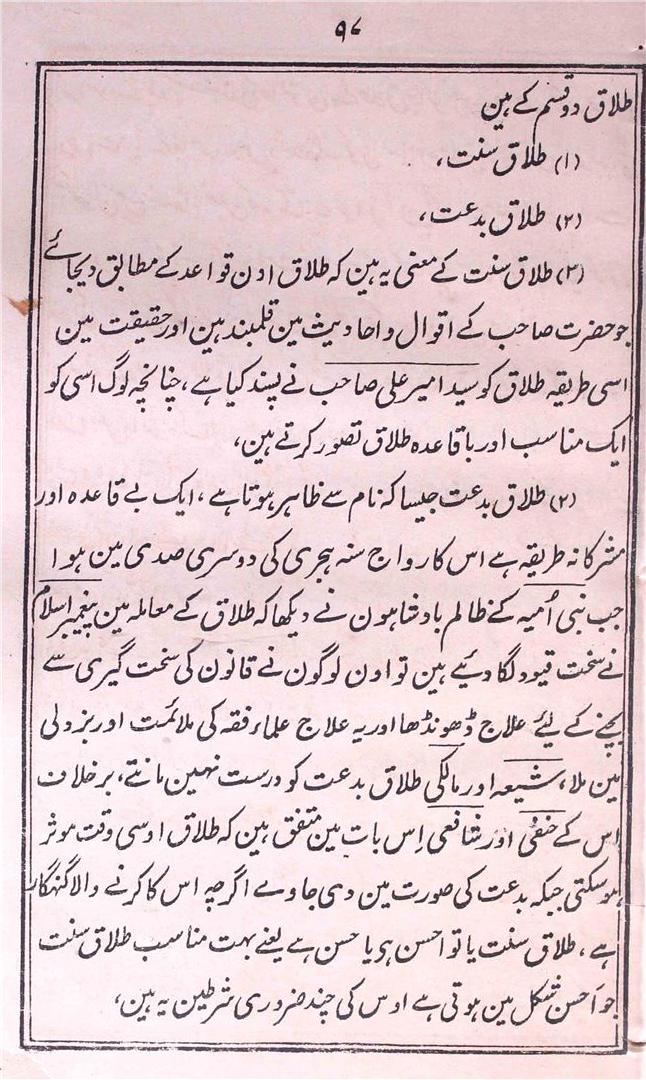 ۹۷
طلاق دو قسم کے ہین
(۱) طلاق سنت،
(۲) طلاق بدعت،
(۳) طلاق سنت کے معنی یہ ہین کہ طلاق اون قواعد کے مطابق دیجائے
جو حضرت صاحب کے اقوال و احادیث مین قلمبند ہین اور حقیقت مین
اسی طریقہ طلاق کو سید امیر علی صاحب نے پسند کیا ہے، چنانچہ لوگ اسی کو
ایک مناسب اور باقاعدہ طلاق تصور کرتے ہین،
(۲) طلاق بدعت جیسا کہ نام سے ظاہر ہوتا ہے، ایک بے قاعدہ اور
مشرکانہ طریقہ ہے اس کا رواج سنہ ہجری کی دوسری صدی مین ہوا
جب بنی اُمیہ کے ظالم بادشاہون نے دیکھا کہ طلاق کے معاملہ مین پیغمبر اسلام
نے سخت قیود لگا دئیے ہین تو اون لوگون نے قانون کی سخت گیری سے
بچنے کے لیئے علاج ڈھونڈھا اور یہ علاج علماء فقہ کی ملائمت اور بزدلی
مین ملا، شیعہ اور مالکی طلاق بدعت کو درست نہین مانتے، برخلاف
اس کے حنفی اور شافعی اِس بات مین متفق ہین کہ طلاق اوسی وقت موثر
ہوسکتی جبکہ بدعت کی صورت مین دی جاوے اگرچہ اس کا کرنے والا گنہگار
ہے، طلاق سنت یا تو احسن ہی یا حسن ہے یعنے بہت مناسب طلاق سنت
جو اَحسن شکل مین ہوتی ہے اوس کی چند ضروری شرطین یہ ہین،